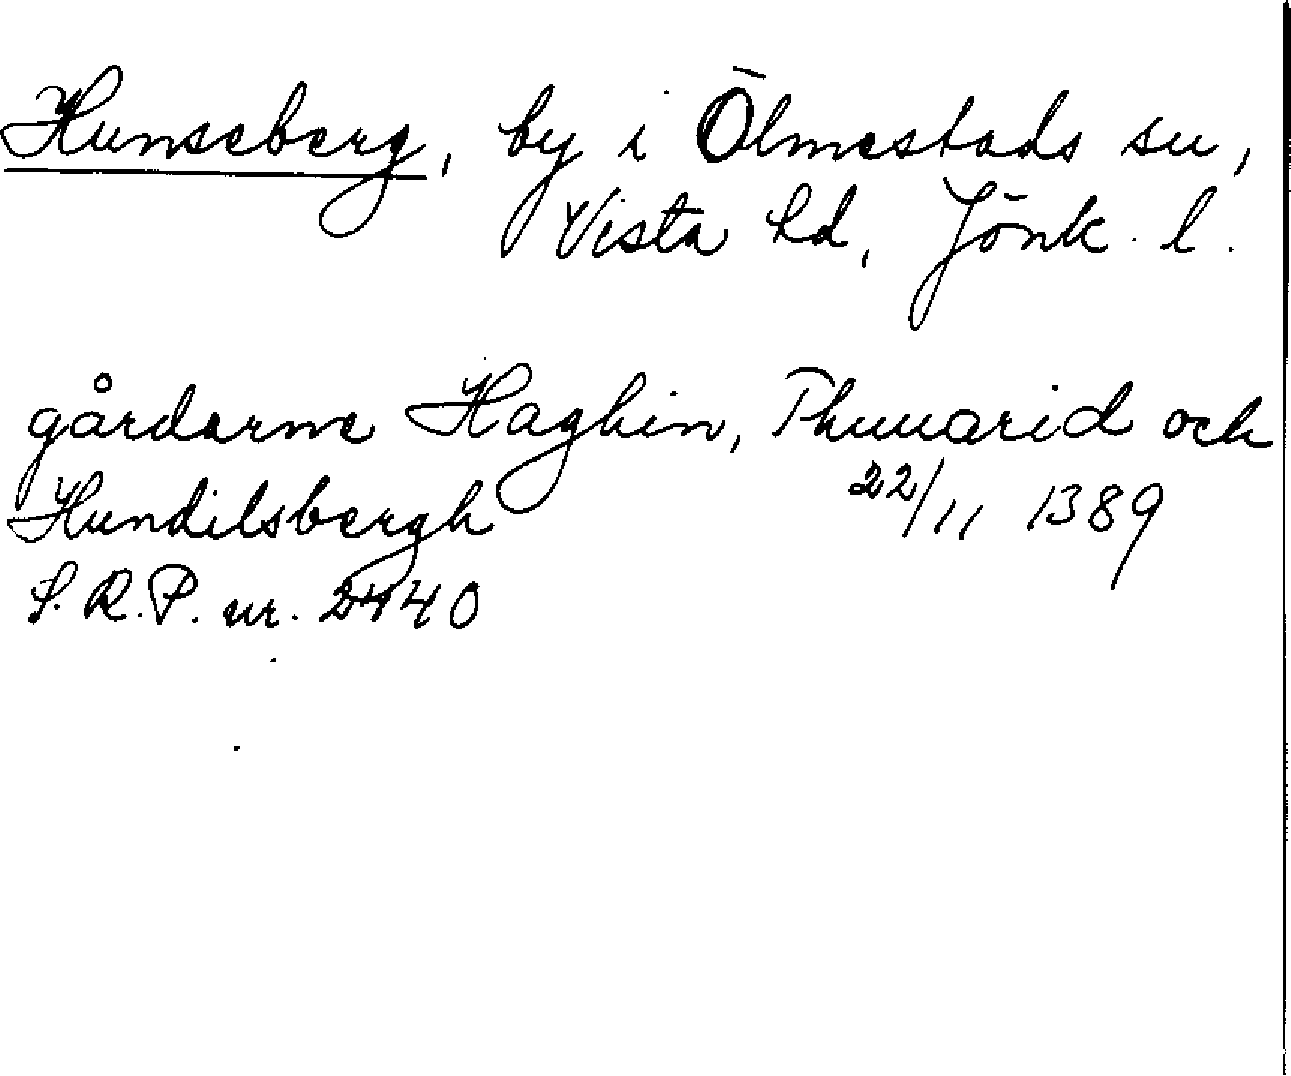 Hunseberg, by i Ölmestads sn,
Vista hd, Jönk. l.
gårdarne Haghin, Thuuarid och
Hundilsbergh 22/11 1389
S. R. P. nr. 2440